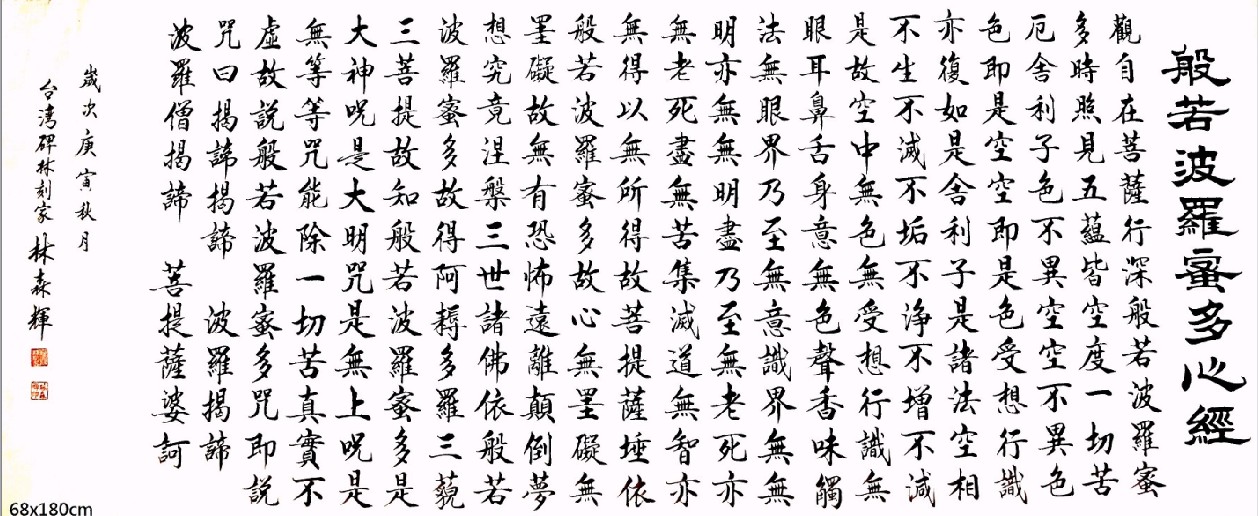 般若波羅蜜多心經
觀自在菩薩行深般若波羅蜜
多時照見五蘊皆空度一切苦
厄舍利子色不異空空不異色
色即是空空即是色受想行識
亦復如是舍利子是諸法空相
不生不滅不垢不淨不增不減
是故空中無色無受想行識無
眼耳鼻舌身意無色聲香味觸
法無眼界乃至無意識界無無
明亦無無明盡乃至無老死亦
無老死盡無苦集滅道無智亦
無得以無所得故菩提薩埵依
般若波羅蜜多故心無罣礙無
罣礙故無有恐怖遠離顛倒夢
想究竟涅槃三世諸佛依般若
波羅蜜多故得阿耨多羅三藐
三菩提故知般若波羅蜜多是
大神咒是大明咒是無上呪是
無等等咒能除一切苦真實不
虛故說般若波羅蜜多咒即說
咒曰揭諦揭諦 波羅揭諦
波羅僧揭諦 菩提薩婆訶
歲次庚寅秋月
台湾碑林刻家林森輝
68x180cm